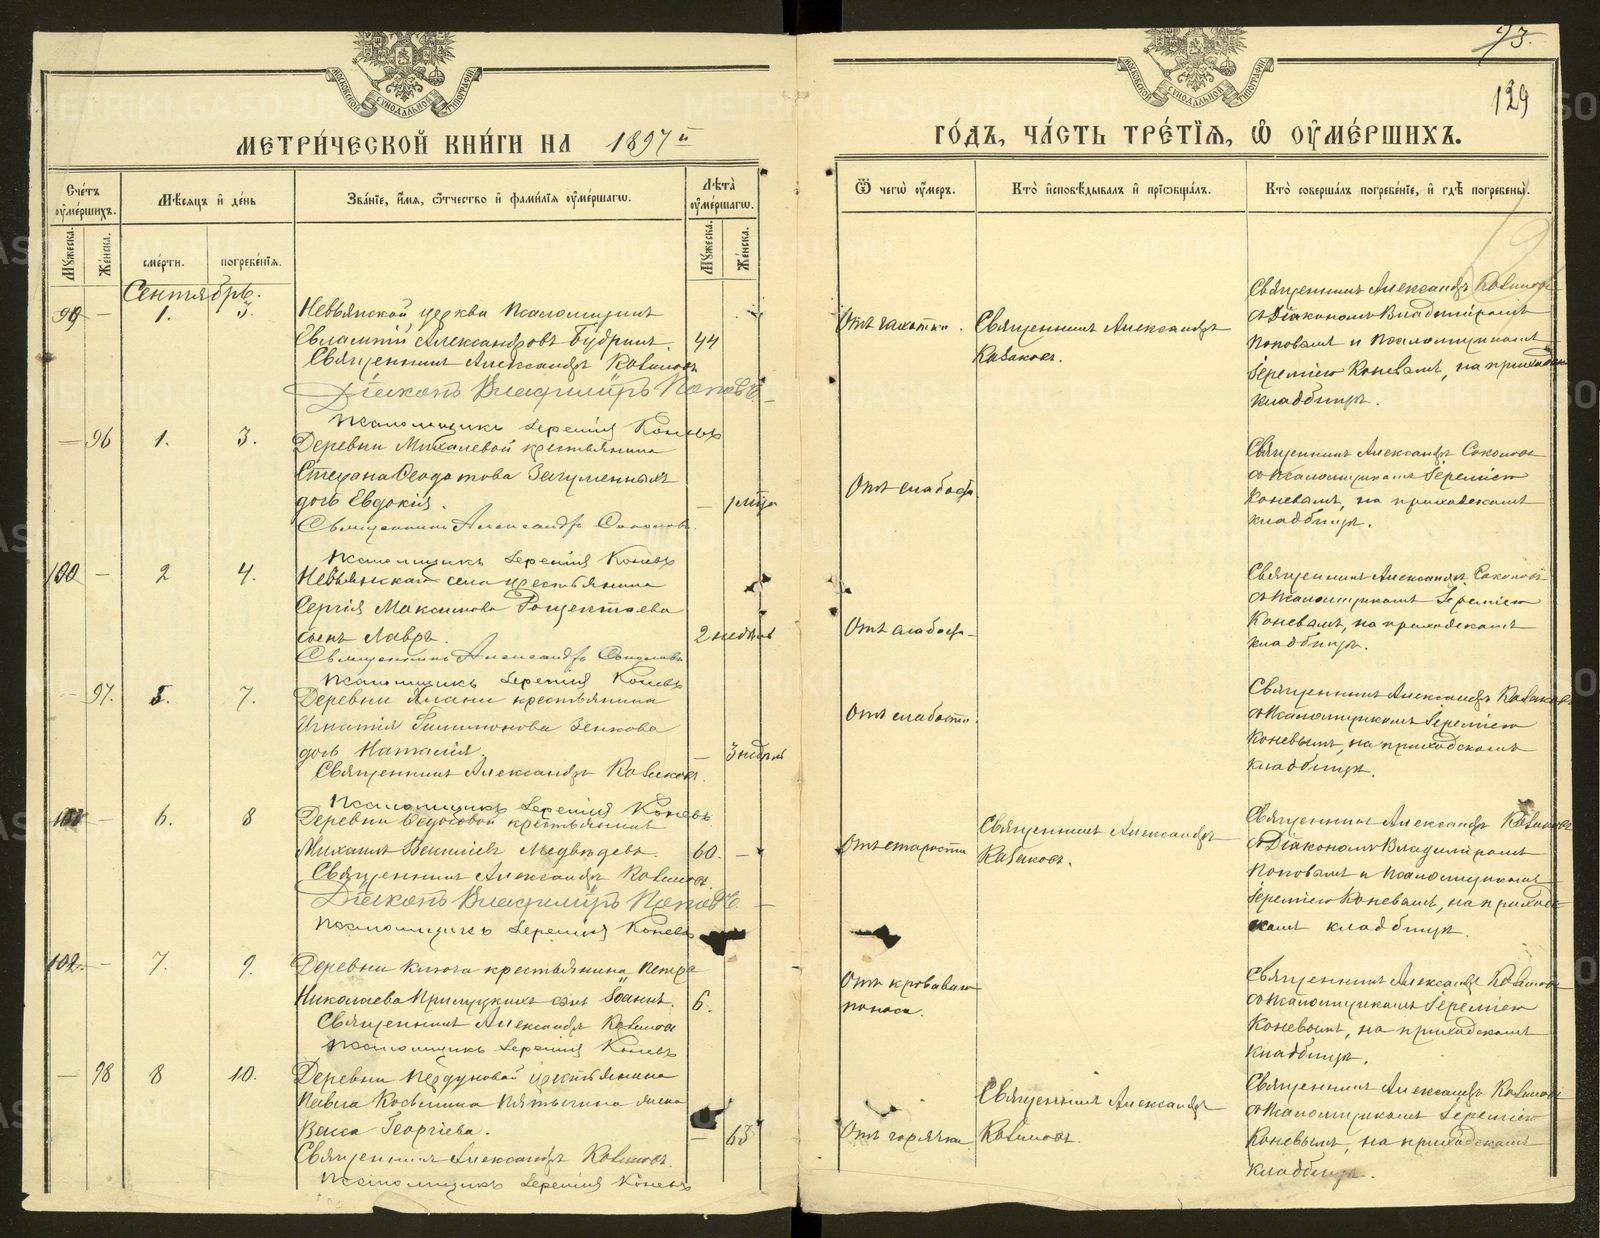 73.
129
МОСКОВСКОЙ СѴНОДАЛЬНОЙ ТИПОГРАФІИ
МОСКОВСКОЙ СѴНОДАЛЬНОЙ ТИПОГРАФІИ
МЕТРИ́ЧЕСКОЙ КНИ́ГИ НА 1897 й
ГО́ДЪ, ЧА́СТЬ ТРЕ́ТІѦ, Ѡ҆ ОУ҆МЕ́РШИХЪ.
Сче́тъ оу҆ме́ршихъ.
Мꙋ́жеска.
Же́нска.
Мѣ́сѧцъ и҆ де́нь
сме́рти.
погребе́нїѧ.
Зва́нїе, и҆́мѧ, ѻ҆́тчество и҆ фами́лїѧ оу҆ме́ршагѡ.
Лѣ́та оу҆ме́ршагѡ.
Мꙋ́жеска.
Же́нска.
Ѿ чегѡ̀ оу҆́меръ.
Кто̀ и҆сповѣ́дывалъ и҆ прїѡбща́лъ.
Кто̀ соверша́лъ погребе́нїе, и҆ гдѣ̀ погребены̀.
Сентябрь.
99 — 1. 3.
Невьянской церкви Псаломщикъ
Александровъ Будринъ. 44
Священникъ Александръ Казаковъ
Діаконъ Владиміръ Поповъ
Псаломщикъ Іеремія Коневъ
Отъ чахотки.
Священникъ Александръ
Казаковъ.
Священникъ Александръ Казаковъ
съ Діакономъ Владиміромъ
Поповымъ и Псаломщикомъ
Іереміею Коневымъ, на приходскомъ
кладбищѣ.
— 96 1. 3.
Деревни Михалевой крестьянина
Стефана Ѳеодотова Загуменныхъ
дочь Евдокія. —
Священникъ Александръ Соколовъ.
Псаломщикъ Іеремія Коневъ
Отъ слабости.
Священникъ Александръ Соколовъ
съ Псаломщикомъ Іереміею
Коневымъ, на приходскомъ
кладбищѣ.
100 — 2 4.
Невьянскаго села крестьянина
Сергія Максимова
сынъ Лавръ. 2 недѣль
Священникъ Александръ Соколовъ
Псаломщикъ Іеремія Коневъ
Отъ слабости
Священникъ Александръ Соколовъ
съ Псаломщикомъ Іереміею
Коневымъ, на приходскомъ
кладбищѣ.
— 97. 5. 7.
Деревни крестьянина
Игнатія Зенкова
дочь Наталія. — 3 недѣль
Священникъ Александръ Казаковъ.
Псаломщикъ Іеремія Коневъ
Отъ слабости.
Священникъ Александръ Казаковъ
съ Псаломщикомъ Іереміею
Коневымъ, на приходскомъ
кладбищѣ.
101 — 6. 8
Деревни крестьянинъ
Михаилъ Медвѣдевъ. 60. —
Священникъ Александръ Казаковъ.
Діаконъ Владиміръ Поповъ
Псаломщикъ Іеремія Коневъ
Отъ старости
Священникъ Александръ
Казаковъ.
Священникъ Александръ Казаковъ
съ Діакономъ Владиміромъ
Поповымъ и Псаломщикомъ
Іереміею Коневымъ, на приход-
скомъ кладбищѣ.
102. — 7. 9.
Деревни Ключа крестьянина Петра
Николаева сынъ Іоаннъ. 6.
Священникъ Александръ Казаковъ
Псаломщикъ Іеремія Коневъ
Отъ кроваваго
поноса.
Священникъ Александръ Казаковъ
съ Псаломщикомъ Іереміею
Коневымъ, на приходскомъ
кладбищѣ.
— 98 8 10.
Деревни крестьянина
Павла Косьмина жена
Васса Георгіева. — 63
Священникъ Александръ Казаковъ.
Псаломщикъ Іеремія Коневъ
Отъ горячки
Священникъ Александръ
Казаковъ.
Священникъ Александръ Казаковъ
съ Псаломщикомъ Іереміею
Коневымъ, на приходскомъ
кладбищѣ.
METRIKI.GASO-URAL.RU